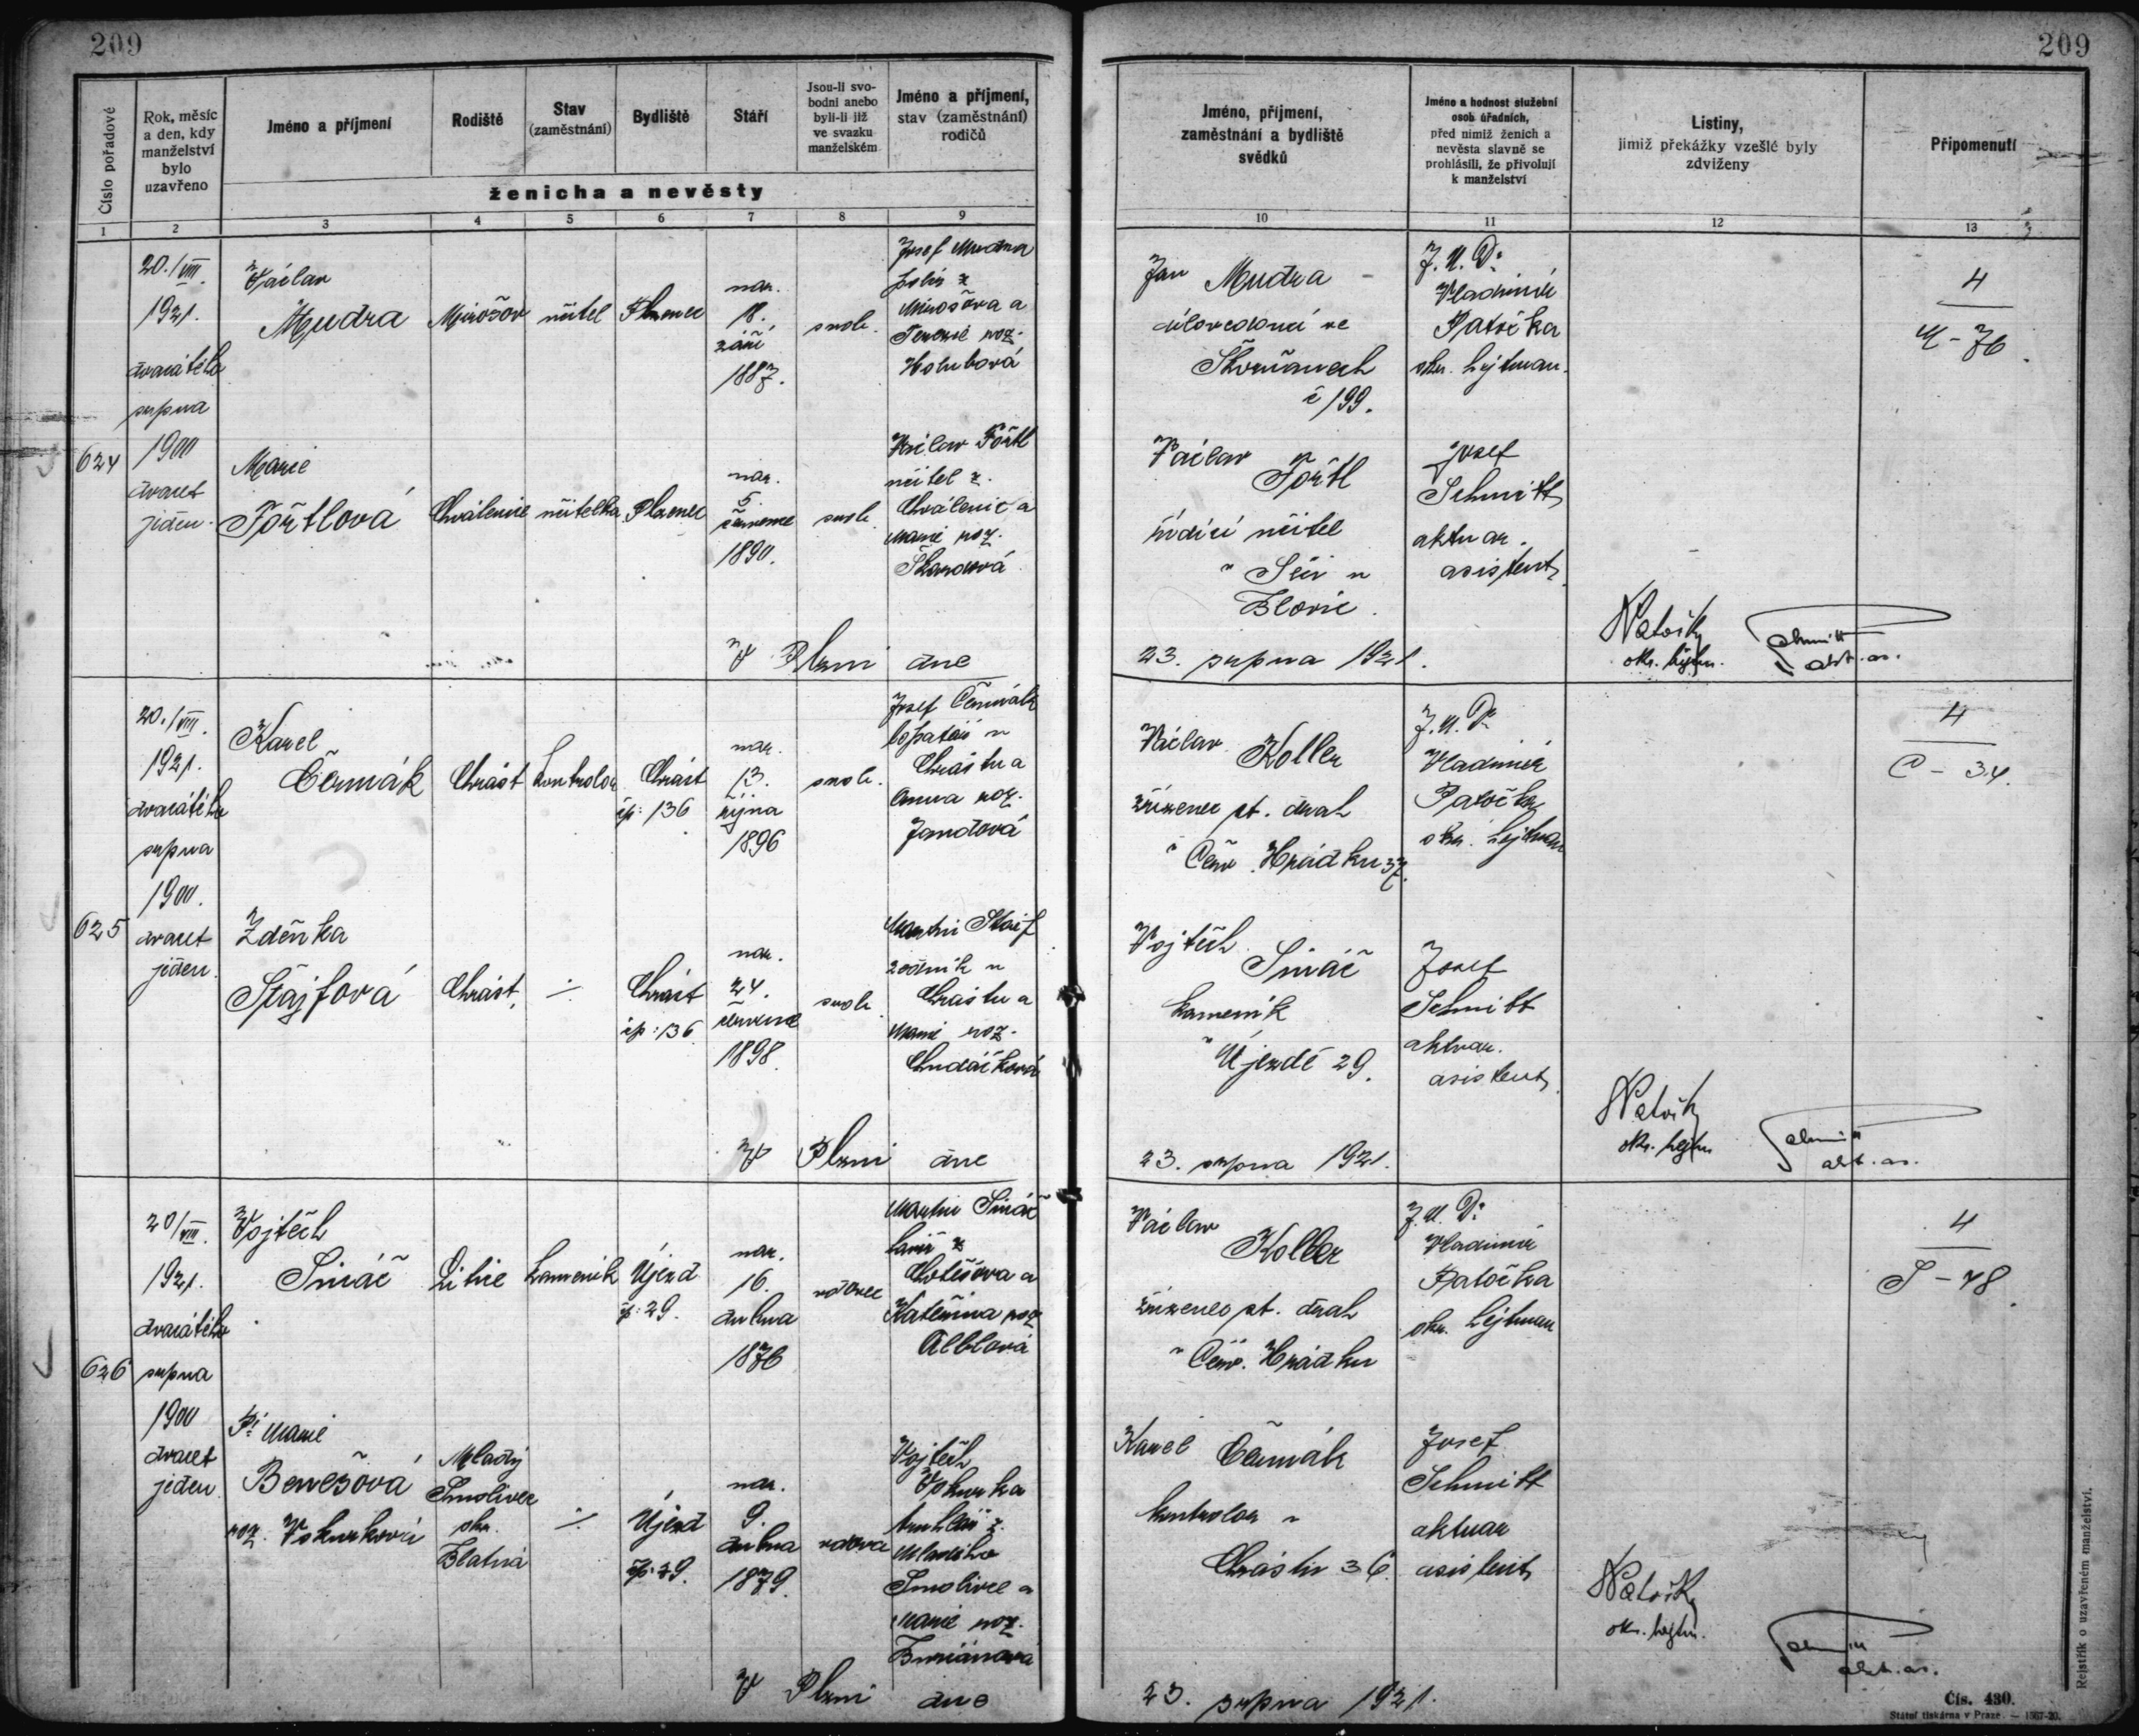 209
209
Číslo pořadové
Rok, měsíc
a den, kdy
manželství
bylo
uzavřeno
Jméno a příjmení
Rodiště
Stav
(zaměstnání)
Bydliště
Stáří
Jsou-li svo-
bodni anebo
byli-li již
ve svazku
manželském
Jméno a příjmení,
stav (zaměstnání)
rodičů
ženicha a nevěsty
1 2 3 4 5 6 7 8 9
Jméno, příjmení,
zaměstnání a bydliště
svědků
Jméno a hodnost služební
osob úřadních,
před nimiž ženich a
nevěsta slavně se
prohlásili, že přivolují
k manželství
Listiny,
jimiž překážky vzešlé byly
zdviženy
Připomenutí
10 11 12 13
624
20./VIII.
1921.
dvacátého
srpna
1900
dvacet
jeden.
Václav
Mudra
Mirošov
učitel
Plzenec
nar.
18.
září
1887.
svob.
Josef Mudra
z
Mirošova a
Terezie roz.
Holubová
Marie
Tőrtlová
Chválenice
učitelka
Plzenec
nar.
5.
července
1890.
svob.
Václav Tőrtl
učitel z
Chválenic a
Marie roz.
Škardová
Jan Mudra
účovedoucí ve
Skvrňanech
č 199.
Václav
Tőrtl
řídící učitel
v
Blovic.
J.U.Dr
Vladimír
Patočka
okr. hejtman.
Josef
Schmitt
aktuar.
asistent
4
M - 76.
V Plzni dne
23. srpna 1921.
Patočka
okr. hejtm.
Schmitt
akt. as.
625
20./VIII.
1921.
dvacátého
srpna
1900.
dvacet
jeden.
Karel
Čermák
Chrást
kontrolor
Chrást
čp: 136
nar.
13.
října
1896
svob.
Josef Čermák
v
Chrástu a
Anna roz.
Jandová
Zdeňka
Štajfová
Chrást
÷
Chrást
čp: 136
nar.
24.
července
1898.
svob.
Martin Štajf
zedník v
Chrástu a
Marie roz.
Chudáčková
Václav
Koller
zřízenec st. drah
v Červ. Hrádku 37.
Vojtěch
Smáč
kameník
v Újezdě 29.
J.U.Dr
Vladimír
Patočka
okr. hejtman
Josef
Schmitt
aktuar.
asistent
4
C - 34.
V Plzni dne
23. srpna 1921.
Patočka
okr. hejtm
Schmitt
akt. as.
626
20/VIII.
1921.
dvacátého
srpna
1900
dvacet
jeden
Vojtěch
Smáč
Litice
kameník
Újezd
čp: 29.
nar.
16.
dubna
1876
vdovec
Martin Smáč
z
Chotěšova a
Kateřina roz
Alblová
Pí Marie
Benešová
roz. Vokurková
Mladý
Smolivec
okr.
Blatná
÷
Újezd
čp. 29.
nar.
9.
dubna
1879.
vdova
Vojtěch
Vokurka
truhlář z
Mladého
Smolivce a
Marie roz.
Buriánová
Václav
Koller
zřízenec st. drah
v Červ. Hrádku
Karel Čermák
kontrolor v
Chrástu 36.
J.U.Dr
Vladimír
Patočka
okr. hejtman
Josef
Schmitt
aktuar
asistent
4
S - 48.
V Plzni dne
23. srpna 1921.
Patočka
okr. hejtm.
Schmitt
akt. as.
Rejstřík o uzavřeném manželství.
Čís. 430.
Státní tiskárna v Praze. — 1567-20.